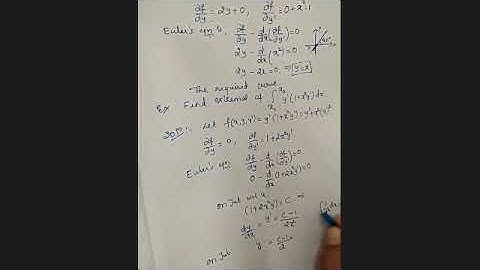 ∂f/∂y = 2y+0, ∂f/∂y' = 0+x²·1
Euler's eqn is, ∂f/∂y - d/dx(∂f/∂y') = 0
2y - d/dx(x²) = 0
2y - 2x = 0 ⇒ y=x
The required curve
Ex Find extremal of ∫ y'(1+x²y')dx
Soln:- Let f(x,y,y') = y'(1+x²y') = y'+x²y'²
∂f/∂y = 0, ∂f/∂y' = 1+2x²y'
Euler's eqn ∂f/∂y - d/dx(∂f/∂y') = 0
0 - d/dx(1+2x²y') = 0
on Int
(1+2x²y') = C
dy/dx = y' = C-1/2x²
on Int y = C-1/2